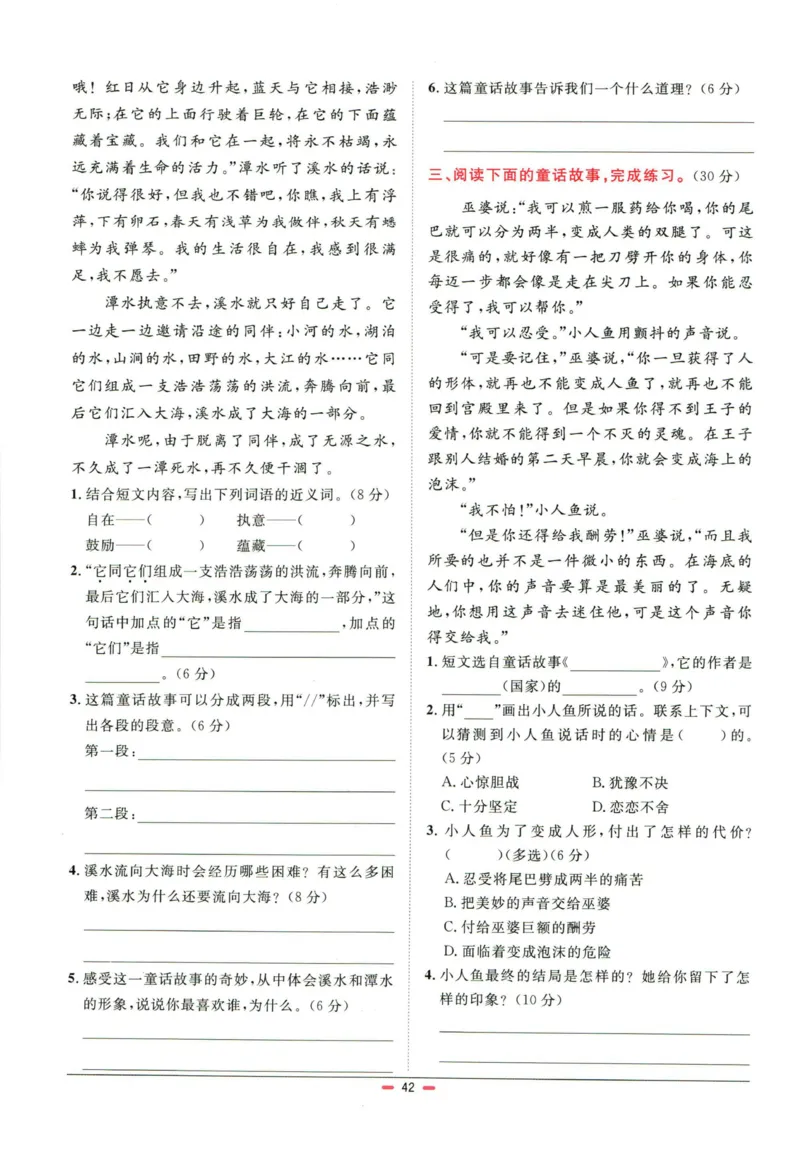 哦！红日从它身边升起,蓝天与它相接,浩渺
无际;在它的上面行驶着巨轮,在它的下面蕴
藏着宝藏。我们和它在一起,将永不枯竭,永
远充满着生命的活力。”潭水听了溪水的话说:
“你说得很好,但我也不错吧,你瞧,我上有浮
萍,下有卵石,春天有浅草为我做伴,秋天有蟋
蟀为我弹琴。我的生活很自在,我感到很满
足,我不愿去。”
潭水执意不去,溪水就只好自己走了。它
一边走一边邀请沿途的同伴:小河的水,湖泊
的水,山涧的水,田野的水,大江的水……它同
它们组成一支浩浩荡荡的洪流,奔腾向前,最
后它们汇入大海,溪水成了大海的一部分。
潭水呢,由于脱离了同伴,成了无源之水,
不久成了一潭死水,再不久便干涸了。
1. 结合短文内容,写出下列词语的近义词。(8 分)
自在——(　　) 执意——(　　)
鼓励——(　　) 蕴藏——(　　)
2. “它同它们组成一支浩浩荡荡的洪流,奔腾向前,
最后它们汇入大海,溪水成了大海的一部分,”这
句话中加点的“它”是指____________,加点的
“它们”是指______________________________
__________。(6 分)
3. 这篇童话故事可以分成两段,用“//”标出,并写
出各段的段意。(6 分)
第一段:______________________________
第二段:______________________________
4. 溪水流向大海时会经历哪些困难？有这么多困
难,溪水为什么还要流向大海？(8 分)
5. 感受这一童话故事的奇妙,从中体会溪水和潭水
的形象,说说你最喜欢谁,为什么。(6 分)
6. 这篇童话故事告诉我们一个什么道理？(6 分)
三、阅读下面的童话故事,完成练习。(30 分)
巫婆说:“我可以煎一服药给你喝,你的尾
巴就可以分为两半,变成人类的双腿了。可这
是很痛的,就好像有一把刀劈开你的身体,你
每迈一步都会像是走在尖刀上。如果你能忍
受得了,我可以帮你。”
“我可以忍受。”小人鱼用颤抖的声音说。
“可是要记住,”巫婆说,“你一旦获得了人
的形体,就再也不能变成人鱼了,就再也不能
回到宫殿里来了。但是如果你得不到王子的
爱情,你就不能得到一个不灭的灵魂。在王子
跟别人结婚的第二天早晨,你就会变成海上的
泡沫。”
“我不怕!”小人鱼说。
“但是你还得给我酬劳!”巫婆说,“而且我
所要的也并不是一件微小的东西。在海底的
人们中,你的声音要算是最美丽的了。无疑
地,你想用这声音去迷住他,可是这个声音你
得交给我。”
1. 短文选自童话故事《____________》,它的作者是
________(国家)的__________。(9 分)
2. 用“____”画出小人鱼所说的话。联系上下文,可
以猜测到小人鱼说话时的心情是(　　)的。
(5 分)
A. 心惊胆战 B. 犹豫不决
C. 十分坚定 D. 恋恋不舍
3. 小人鱼为了变成人形,付出了怎样的代价?
(　　)(多选)(6 分)
A. 忍受将尾巴劈成两半的痛苦
B. 把美妙的声音交给巫婆
C. 付给巫婆巨额的酬劳
D. 面临着变成泡沫的危险
4. 小人鱼最终的结局是怎样的？她给你留下了怎
样的印象？(10 分)
42